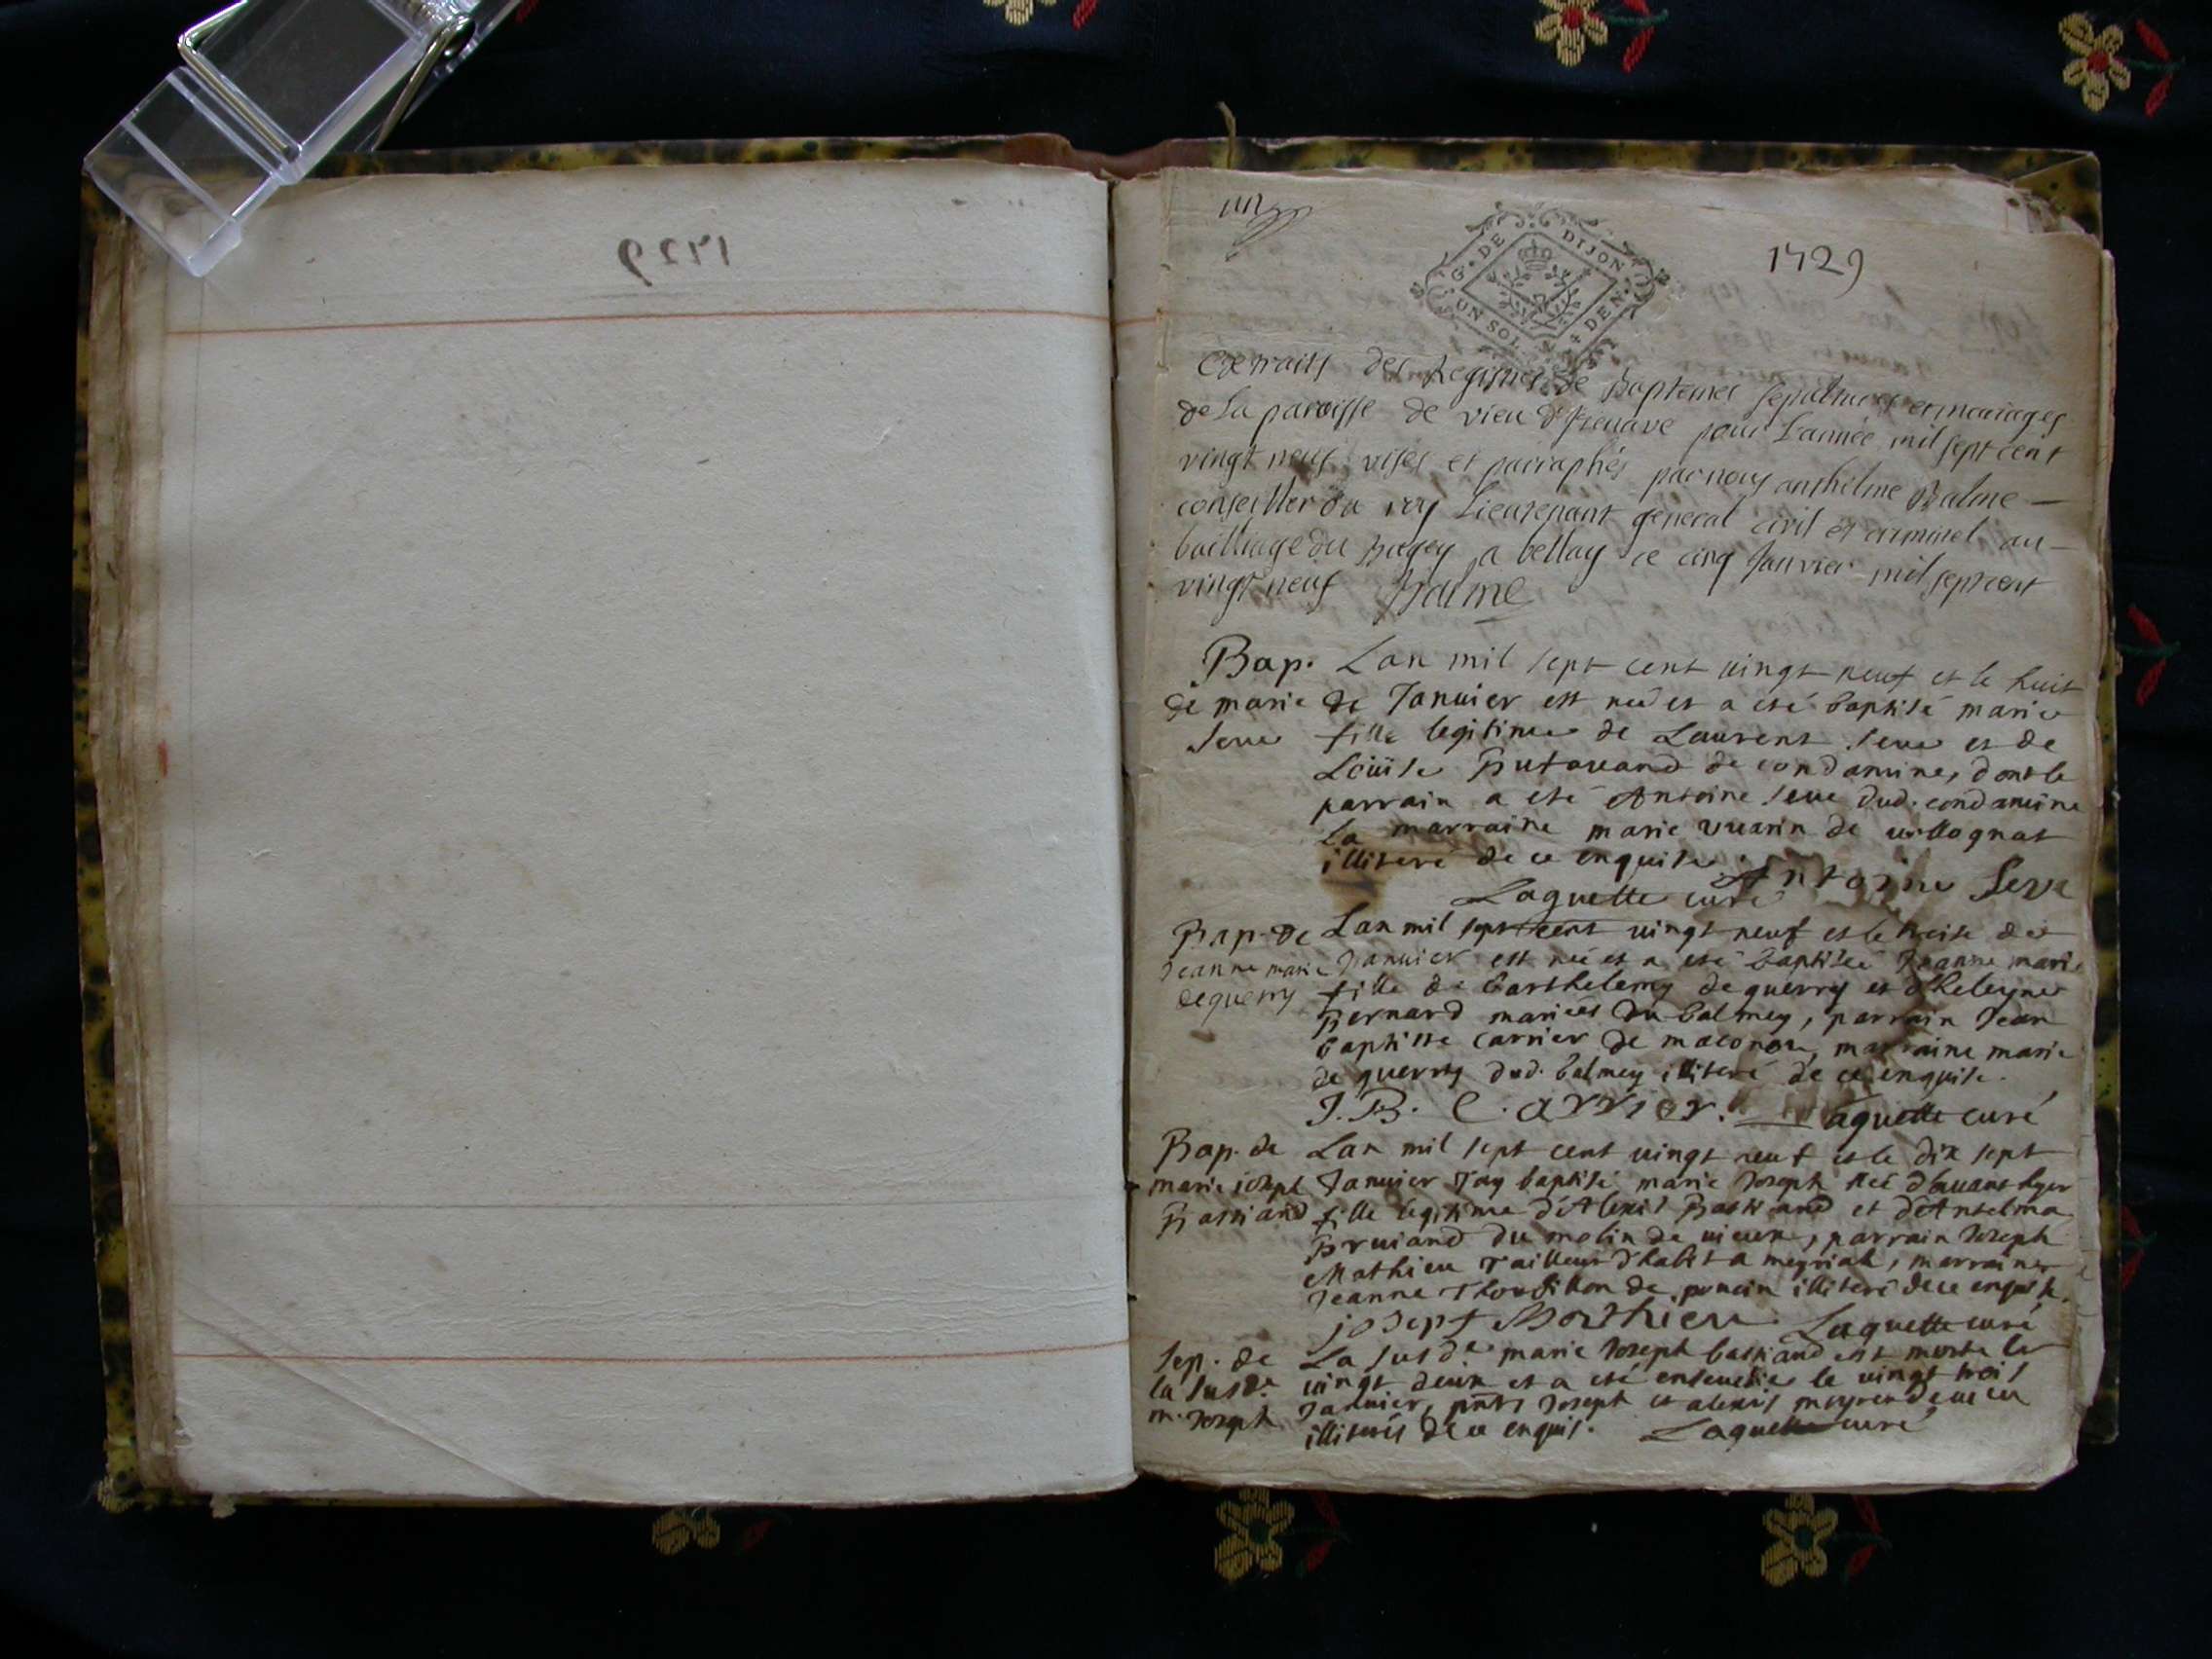 1729
un
G. DE DIJON
UN SOL DEN.
1729
Extraits des Registres de Baptemes sepultures et mariages
de La paroisse de vieu d'Izenave pour L'année mil sept cent
vingt neuf visés et paraphés par nous anthelme Balme —
conseiller du roy Lieutenant general civil et criminel au —
bailliage du bugey a bellay ce cinq Janvier mil sept cent
vingt neuf Balme
Bap. Lan mil sept cent vingt neuf et le huit
de marie de Januier est née et a esté baptisé marie
Seue fille legitime de Laurent Seue et de
Loüise Butauand de condamine, dont le
parrain a esté Antoine Seue dud. condamine
La marraine marie vuarin de uollognat
illiteré de ce enquise. Antoine Seve
Laguette curé
Bap. de Lan mil sept cent vingt neuf et le treise de
Jeanne marie Januier est née et a esté baptisée Jeanne marie
deguerry fille de barthelemy deguerry et d'heleyne
Bernard mariés du balmey, parrain Jean
baptiste carrier de maconou, marraine marie
de guerry dud. balmey illiteré de ce enquise.
J. B. Carrier. Laguette curé
Bap. de Lan mil sept cent vingt neuf et le dix sept
marie joseph Januier Jay baptisé marie Joseph née d'auant hyer
Bastiand fille légitime d'Alexis Bastiand et d'Antelma
Bruiand du molin de uieux, parrain Joseph
Mathieu Tailleur d'habit a meyriak, marraine
Jeanne de poncin illiteré de ce enquise.
josept Mathieu Laguette curé
Sep. de La susde. marie Joseph bastiand est morte le
la susde. vingt deux et a esté enseuelie le vingt trois
m. Joseph Januier, pnts Joseph et alexis
illiterés de ce enquis. Laguette curé